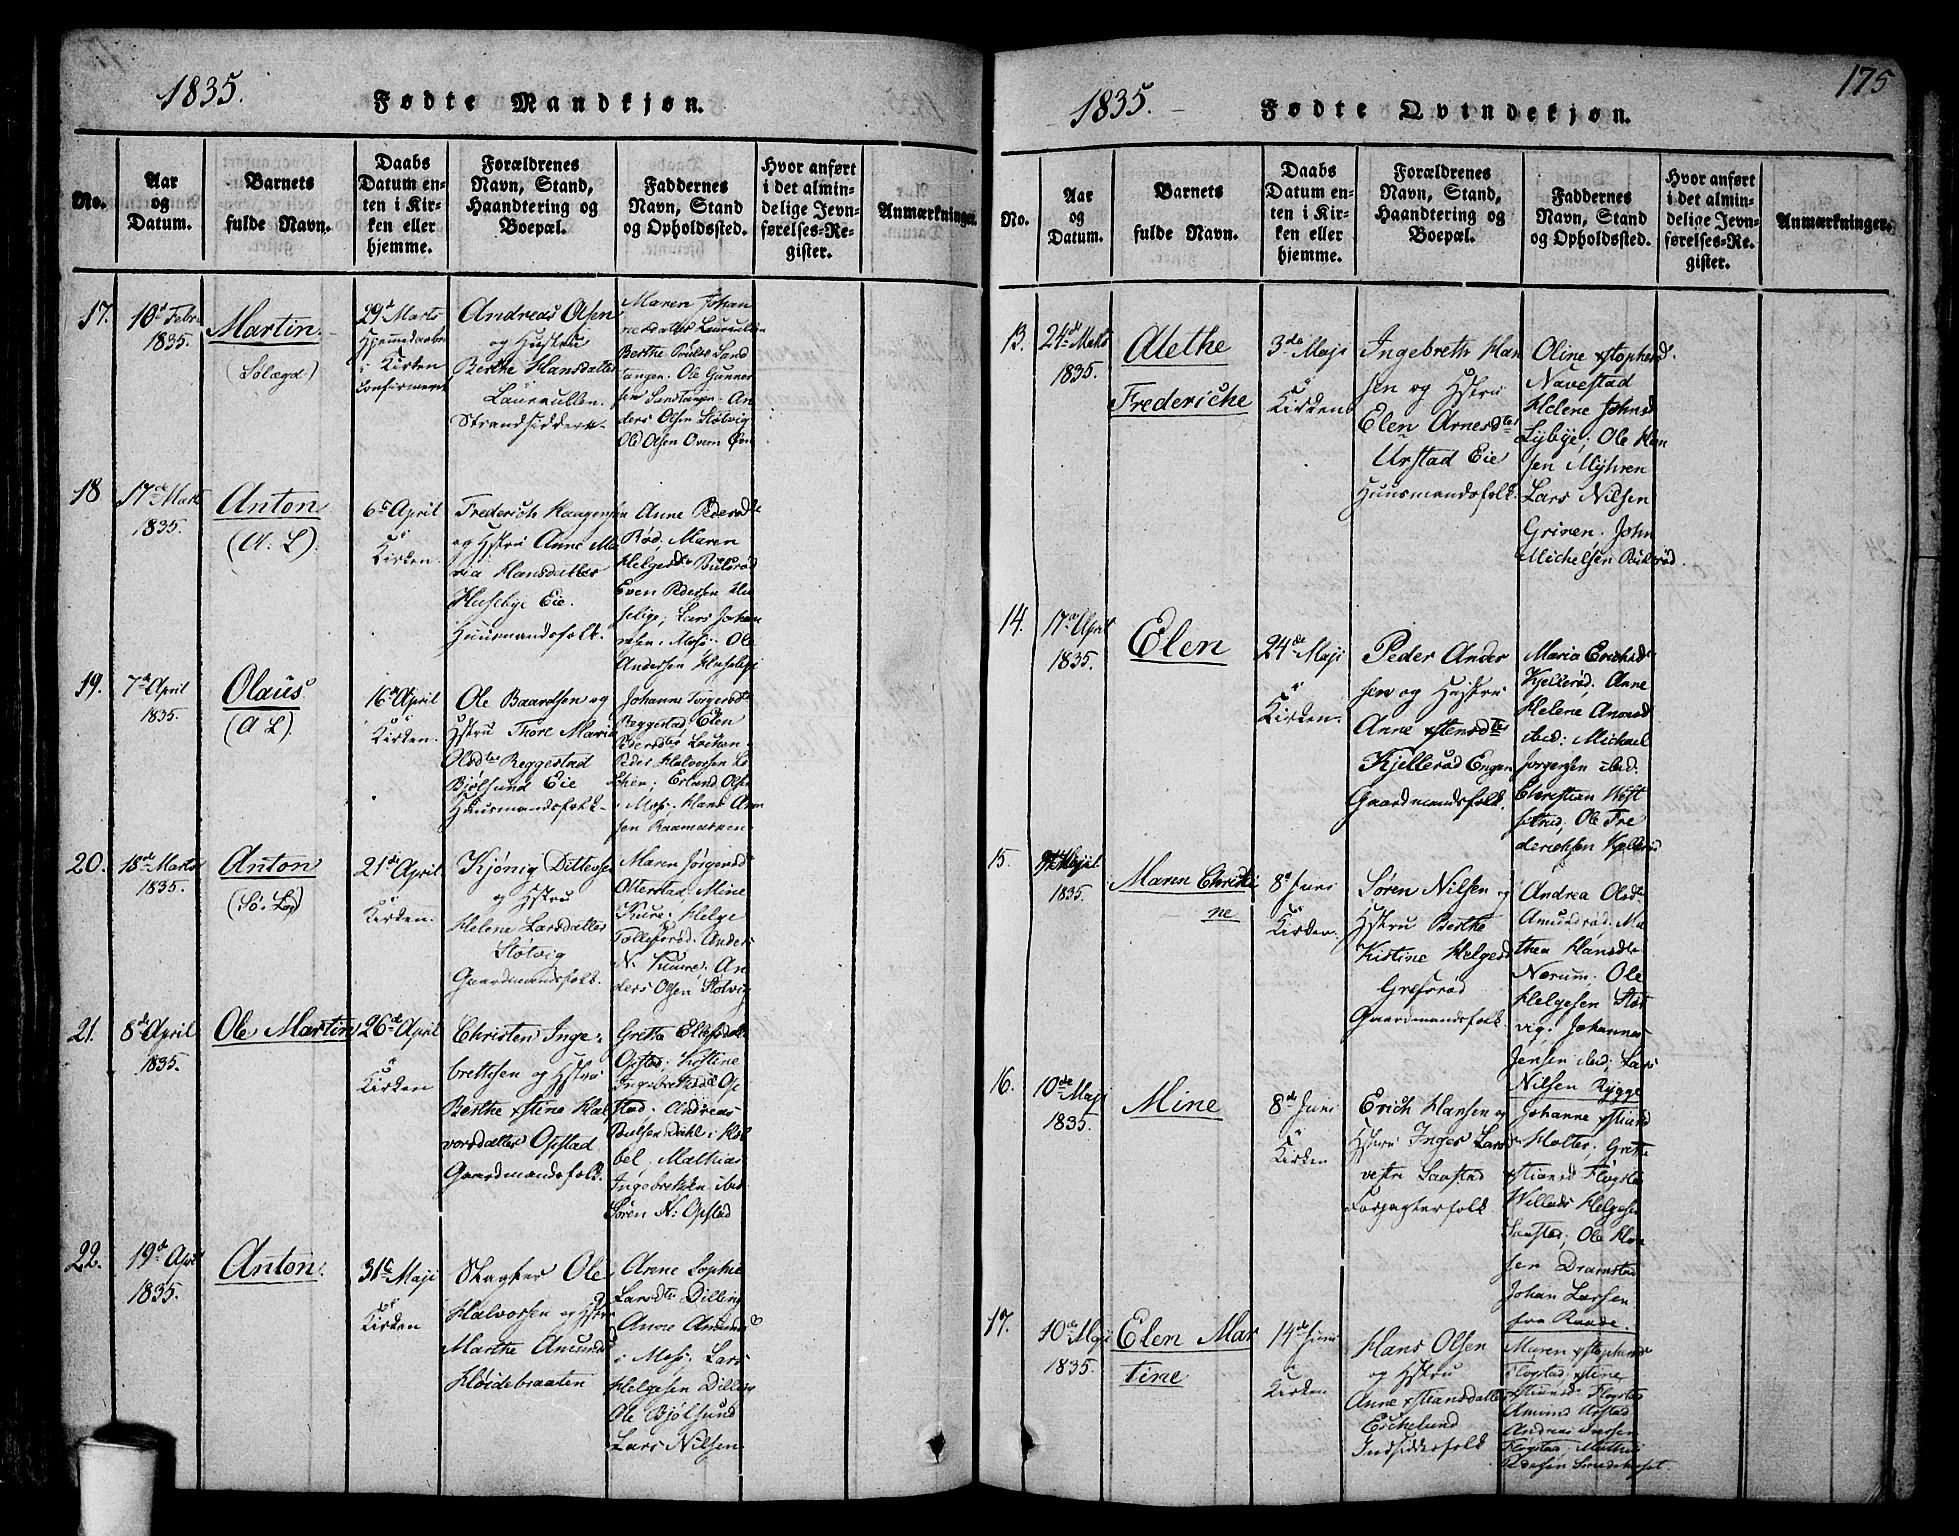 1835.
Fødte Mandkjøn.
No.
Aar
og
Datum.
Barnets
fulde Navn.
Daabs
Datum en-
ten i Kir-
ken eller
hjemme.
Forældrenes
Navn, Stand,
Haandtering og
Boepæl.
Faddernes
Navn, Stand
og Opholdssted.
Hvor anført
i det almin-
delige Jevn-
førelses-Re-
gister.
Anmærkninger.
17.
10d Febr
1835.
Martin
29d Marts
Kirken
Andreas Olsen
og Hustru
Berthe Hansdatter
Laurkullen
Strandsiddere
Maren Johan
Berthe Pouls Sand
tangen. Ole Gunner
sen Sandtangen. An
ders Olsen Støtvig
Ole Olsen
18
17de Marts
1835.
Anton
(A. L).
6te April
i
Kirken.
Frederich Haagensen
og Hstru Anne Ma
ria Hansdatter
Husebye Eie.
Huusmandsfolk.
Anne Pedersdtr
Rød. Maren
Helgesdtr
Even Pedersen
Lars Johan
nesen. Moss. Ole
Andersen Husebye
19.
7de April
1835.
Olaus
(A L).
16de April
i
Kirken.
Ole Baardsen og
Hstru Thore Maria
Olsdtr Reggestad
Bjølsund Eie
Huusmandsfolk
Johanne
Reggestad Elen
Peder Halvorsen
Erland Olsen
i Moss. Hans
sen
20.
18de Marts
1835.
Anton
21de April
i
Kirken.
Kjønig Ditlevsen
og Hstru
Helene Larsdatter
Støtvig
Gaardmandsfolk.
Maren Jørgensd
Otterstad, Mine
Kure. Helge
Tollefsrød. Anders
N. Kuure. An
ders Olsen Støtvig
21.
8de April
1835.
Ole Martin
26de April
i
Kirken
Christen Inge-
bretsen og Hstru
Berthe xstine Hal
vorsdatter Opstad
Gaardmandsfolk.
Grethe
Opstad. Kistine
Ingebretsd Op
stad. Andreas
Poulsen Dahl i Ha
bel. Mathias
Ingebretsen ibid
Søren H: Opstad
22.
19de Apr
1835.
Anton.
31te Maji
i
Kirken
Slagter Ole
Halvorsen og Hstru
Marthe Amunds
Høidebraaten
Anne Sophie
Larsdtr Dilling
Anne Amunds
i Moss. Lars
Helgesen Dilling
Ole Bjølsund
Lars Nilsen
175
1835.
Fødte Qvindekjøn.
No.
Aar
og
Datum.
Barnets
fulde Navn.
Daabs
Datum en-
ten i Kir-
ken eller
hjemme.
Forældrenes
Navn, Stand,
Haandtering og
Boepæl.
Faddernes
Navn, Stand
og Opholdssted.
Hvor anført
i det almin-
delige Jevn-
førelses-Re-
gister.
Anmærkninger.
13.
24de Mrts
1835.
Alethe
Frederiche
3de Maji
i
Kirken
Ingebreth Han
sen og Hstru
Elen Arnesdtr
Urstad Eie
Huusmandsfolk.
Oline xstophersd.
Navestad
Helene Johnsd
Lybye; Ole Han
sen Myhren
Lars Nilsen
Grinen. John
Michelsen
14.
17de April
1835.
Elen
24de Maji
i
Kirken.
Peder Ander
sen og Hustru
Anne xstensdtr
Kjellerød Engen
Gaardmandsfolk.
Maria Erichsdtr
Kjellerød. Anne
Helene
ibid: Michael
Jørgensen ibid.
Christian
Ole Fre
derichsen Kjellerød
15.
1835.
Maren Christi
ne
8de Juni
i
Kirken.
Søren Nilsen og
Hstru Berthe
Kistine Helgesd
Grefsrød
Gaardmandsfolk.
Andrea Olsdtr
Amundrød. Ma
thea Hansdtr
Nærum. Ole
Helgesen Støt
vig. Johannes
Jensen ibid; Lars
Nilsen Rygge
16.
10de Maji
1835.
Mine
8de Juni
i
Kirken
Erich Hansen og
Hstru Inger Larsd
vestre Saastad
Forpagterfolk
Johanne xstiansd
Holter, Grethe
xstiansd Fløgstad
Willads Helgesen
Saastad; Ole Han
sen Dramstad
Johan Larsen
fra Raade.
17.
10de Maji
1835.
Elen Mar
tine
14de Juni
i
Kirken
Hans Olsen
og Hstru
Anne xstiansdatter
Eichelund
Indsidderfolk
Maren xstophersd
Fløgstad. xstine
xstiansd Fløgstad
Amund Urstad
Andreas Iversen
Fløgstad. Mathis